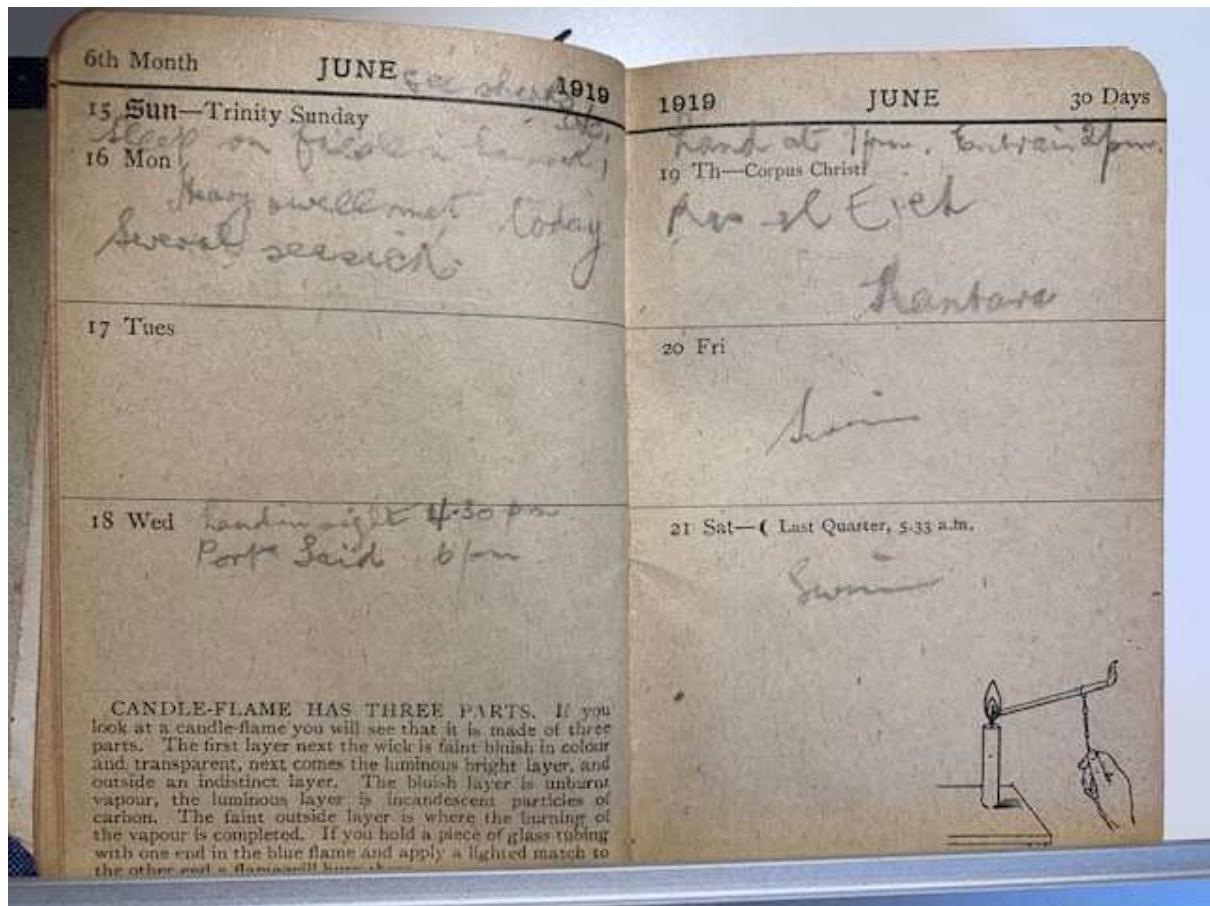 6th Month JUNE 1919
see sharks
15 Sun—Trinity Sunday
Sleep on
16 Mon
Heavy swell met today
Several seasick.
17 Tues
18 Wed Land in sight 4.30 pm
Port Said 6 pm
CANDLE-FLAME HAS THREE PARTS. If you
look at a candle-flame you will see that it is made of three
parts. The first layer next the wick is faint bluish in colour
and transparent, next comes the luminous bright layer, and
outside an indistinct layer. The bluish layer is unburnt
vapour, the luminous layer is incandescent particles of
carbon. The faint outside layer is where the burning of
the vapour is completed. If you hold a piece of glass tubing
with one end in the blue flame and apply a lighted match to
the other end a flame will burn there
1919 JUNE 30 Days
Land at 1pm. Entrain 2pm.
19 Th—Corpus Christi
Ras el Eich
Kantara
20 Fri
Swim
21 Sat—☾ Last Quarter, 5.33 a.m.
Swim